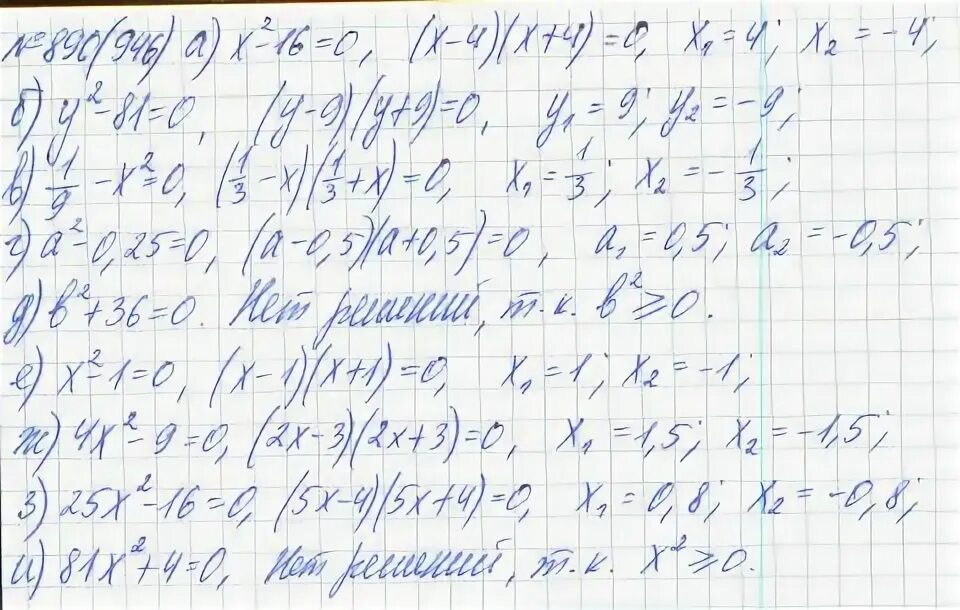 №890(946) а) x²-16=0, (x-4)(x+4)=0, x₁=4; x₂=-4;
б) y²-81=0, (y-9)(y+9)=0, y₁=9; y₂=-9;
в) 1/9-x²=0, (1/3-x)(1/3+x)=0, x₁=1/3; x₂=-1/3;
г) a²-0,25=0, (a-0,5)(a+0,5)=0, a₁=0,5; a₂=-0,5;
д) b²+36=0. Нет решений, т.к. b²⩾0.
е) x²-1=0, (x-1)(x+1)=0, x₁=1; x₂=-1;
ж) 4x²-9=0, (2x-3)(2x+3)=0, x₁=1,5; x₂=-1,5;
з) 25x²-16=0, (5x-4)(5x+4)=0, x₁=0,8; x₂=-0,8;
и) 81x²+4=0, Нет решений, т.к. x²⩾0.